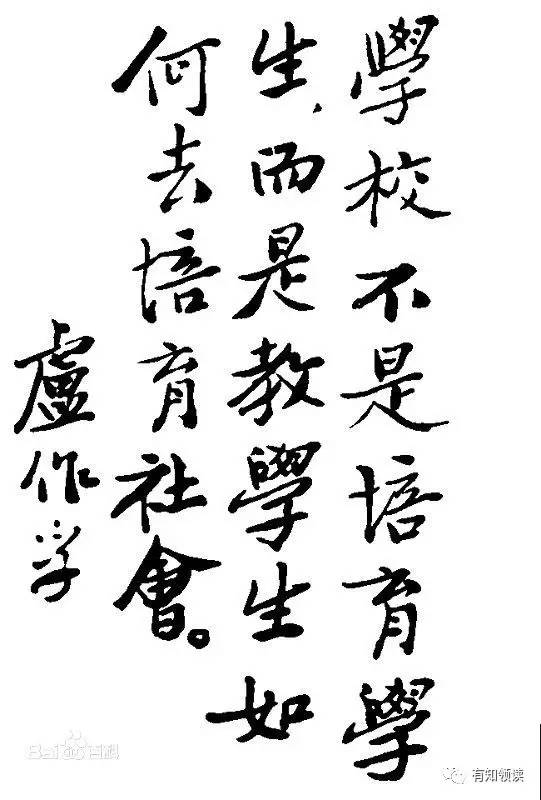 學校不是培育學
生、而是教學生如
何去培育社會。
盧作孚
Bai百科
有知领读